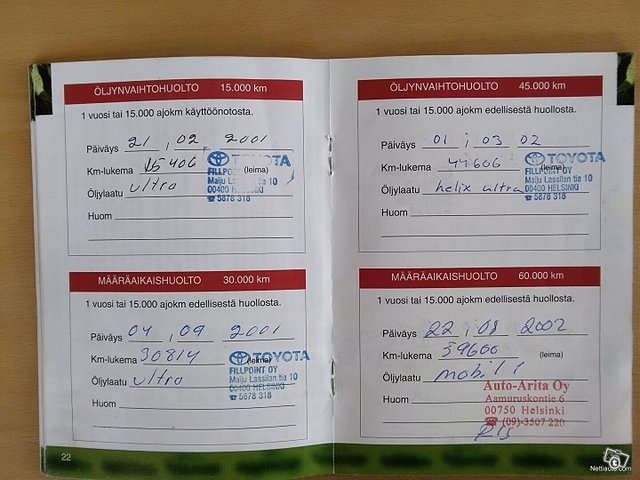 ÖLJYNVAIHTOHUOLTO 15.000 km
1 vuosi tai 15.000 ajokm käyttöönotosta.
Päiväys 21 , 02 . 2001
Km-lukema 15406 (leima)
TOYOTA
FILLPOINT OY
Maiju Lassilan tie 10
00400 HELSINKI
☎ 5878 318
Öljylaatu ultra
Huom
MÄÄRÄAIKAISHUOLTO 30.000 km
1 vuosi tai 15.000 ajokm edellisestä huollosta.
Päiväys 04 , 09 2001
Km-lukema 30814 (leima)
TOYOTA
FILLPOINT OY
Maiju Lassilan tie 10
00400 HELSINKI
☎ 5878 318
Öljylaatu ultra
Huom
22
ÖLJYNVAIHTOHUOLTO 45.000 km
1 vuosi tai 15.000 ajokm edellisestä huollosta.
Päiväys 01 , 03 02
Km-lukema 44606 (leima)
TOYOTA
FILLPOINT OY
Maiju Lassilan tie 10
00400 HELSINKI
☎ 5878 318
Öljylaatu helix ultra
Huom
MÄÄRÄAIKAISHUOLTO 60.000 km
1 vuosi tai 15.000 ajokm edellisestä huollosta.
Päiväys 22 , 08 2002
Km-lukema 59600 (leima)
Öljylaatu mobil 1
Huom
Auto-Arita Oy
Aamuruskontie 6
00750 Helsinki
☎ (09)-3507 220
Nettiauto.com